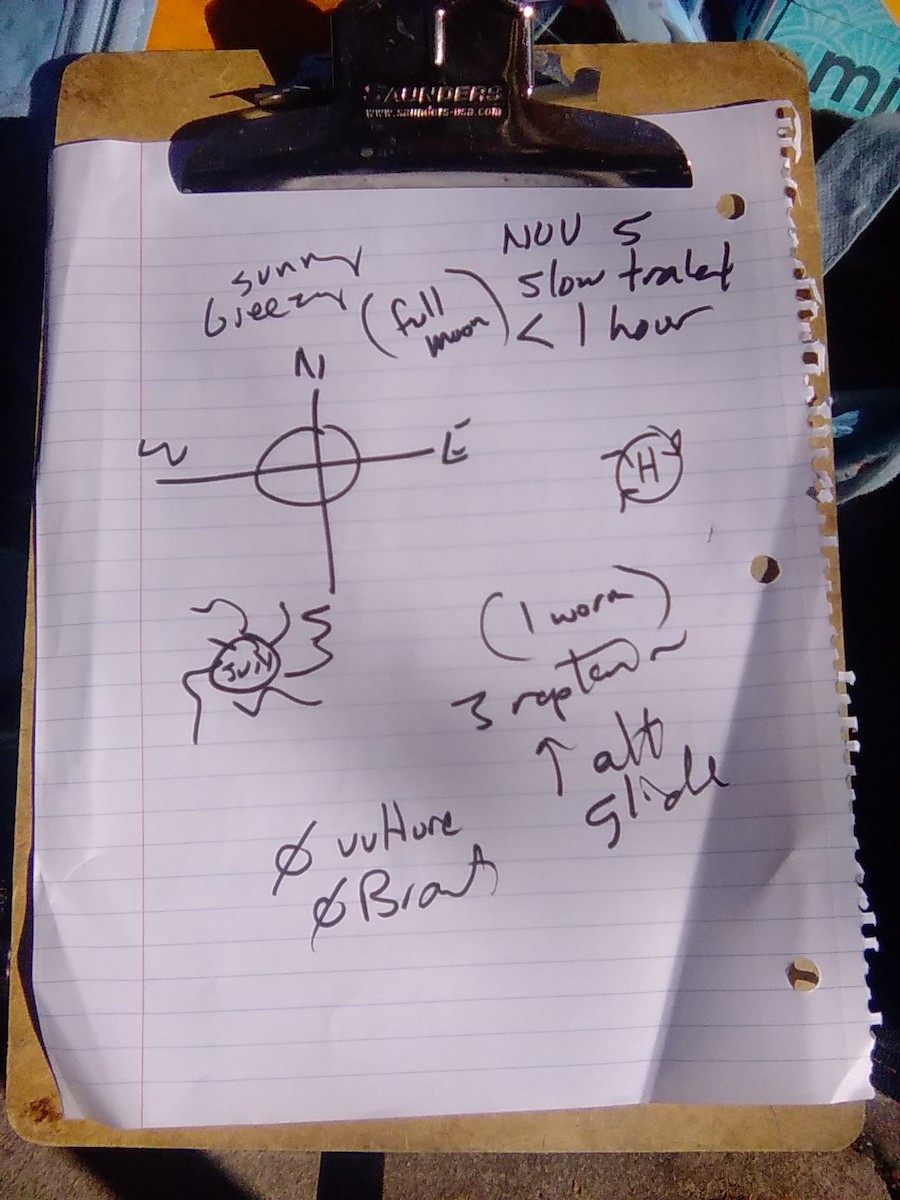 SAUNDERS
www.saunders-usa.com
mi
sunny
breezy
(full
moon)
NOV 5
slow
< 1 hour
N
W
E
S
H
SUN
(1 worm)
3
↑ alt
glide
Ø vulture
Ø Brant